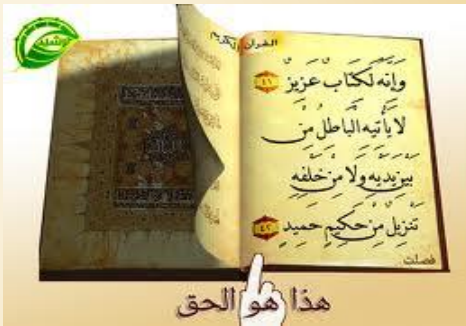 القرآن الكريم
وَإِنَّهُ لَكِتَابٌ عَزِيزٌ ٤١
لا يَأْتِيهِ الباطِلُ مِن
بَيْنِ يَدَيْهِ وَلا مِنْ خَلْفِهِ
تَنْزِيلٌ مِنْ حَكِيمٍ حَمِيدٍ ٤٢
فصلت
هذا هو الحق